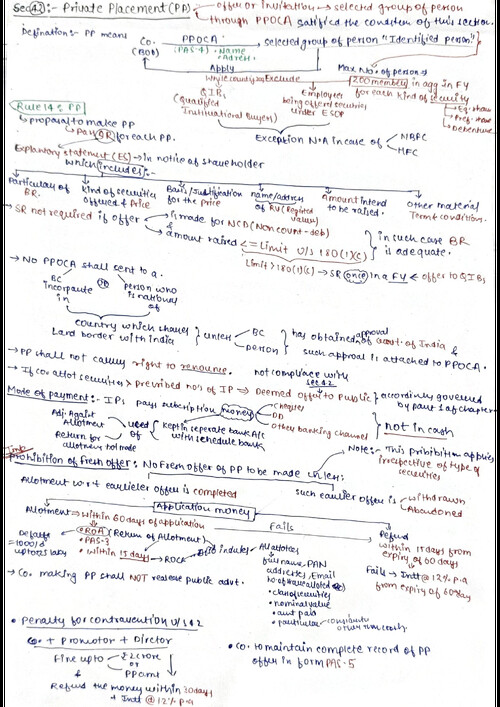 Sec 42 :- Private Placement (PP) → offer or invitation → selected group of person
through PPOCA satisfied the condition of this section.
Definations:- PP means
Co. PPOCA → selected group of person "Identified person"
(BOD) (PAS-4) • Name
• Adress
Apply
Max No. of persons
while counting Exclude 200 member in agg in FY
for each kind of security
QIBs
(Qualified
Institutional Buyers)
Employees
being offered securities
under ESOP
Eq. share
Pref. share
Debenture
Exception N.A in case of NBFC
HFC
Rule 14 : PP
→ proposal to make PP
→ Pass SR for each PP.
Explanatory statement (ES) → in notice of shareholder
which includes:-
Particulars of
BR.
Kind of securities
offered & Price
Basis/Justification
for the Price
name/address
of RV (Registered
valuer)
Amount intend
to be raised.
Other material
Terms & conditions.
→ SR not required if offer → is made for NCD (Non convt-deb)
&
→ amount raised <= Limit u/s 180(1)(c)
in such case BR
is adequate.
Limit > 180(1)(c) → SR once in a FY ← offer to QIBs
→ No PPOCA shall sent to a.
BC
incorporate
in
OR
person who
is national
of
Country which shares
Land border with india
unless BC
person
has obtained approval
of Govt. of India &
such approval is attached to PPOCA.
→ PP shall not carry right to renounce.
not compliance with
sec 42
→ If co. allot securities > prescribed no's of IP → Deemed offer to Public accordingly governed
by part 1 of chapter
Mode of payment:- IPs pays subscription money
Cheques
DD
other banking channel
not in cash
Adj. Against
Allotment
Return for
allotment not made
used of
Kept in seperate bank A/c
with schedule bank
Note:- This prohibition applies
irrespective of type of
securities
Imp
Prohibition of Fresh offer: No Fresh offer of PP to be made unless:
Allotment w.r.t earlier offer is completed
such earlier offer is withdrawn
Abandoned
Application money
Allotment → within 60 days of application
Fails
Refund
within 15 days from
expiry of 60 days
Fails → Intt @ 12% p.a
from expiry of 60 day
Default
= 1000/d
upto 25 laky
• ROA (Return of Allotment)
• PAS-3
• within 15 days → ROC
Also includes Allottees
full name, PAN
address, Email
No of share alloted
• class of securities
• nominal value
• amt paid
• particular consideration
other than cash
→ Co. making PP shall NOT realese public advt.
• Penalty for contravention u/s 42
Co. + Promotor + Director
Fine upto ₹2 crore
or
PP amt
↓
Refund the money within 30 days
+ Intt @ 12% p.a
• Co. to maintain complete record of PP
offer in form PAS-5